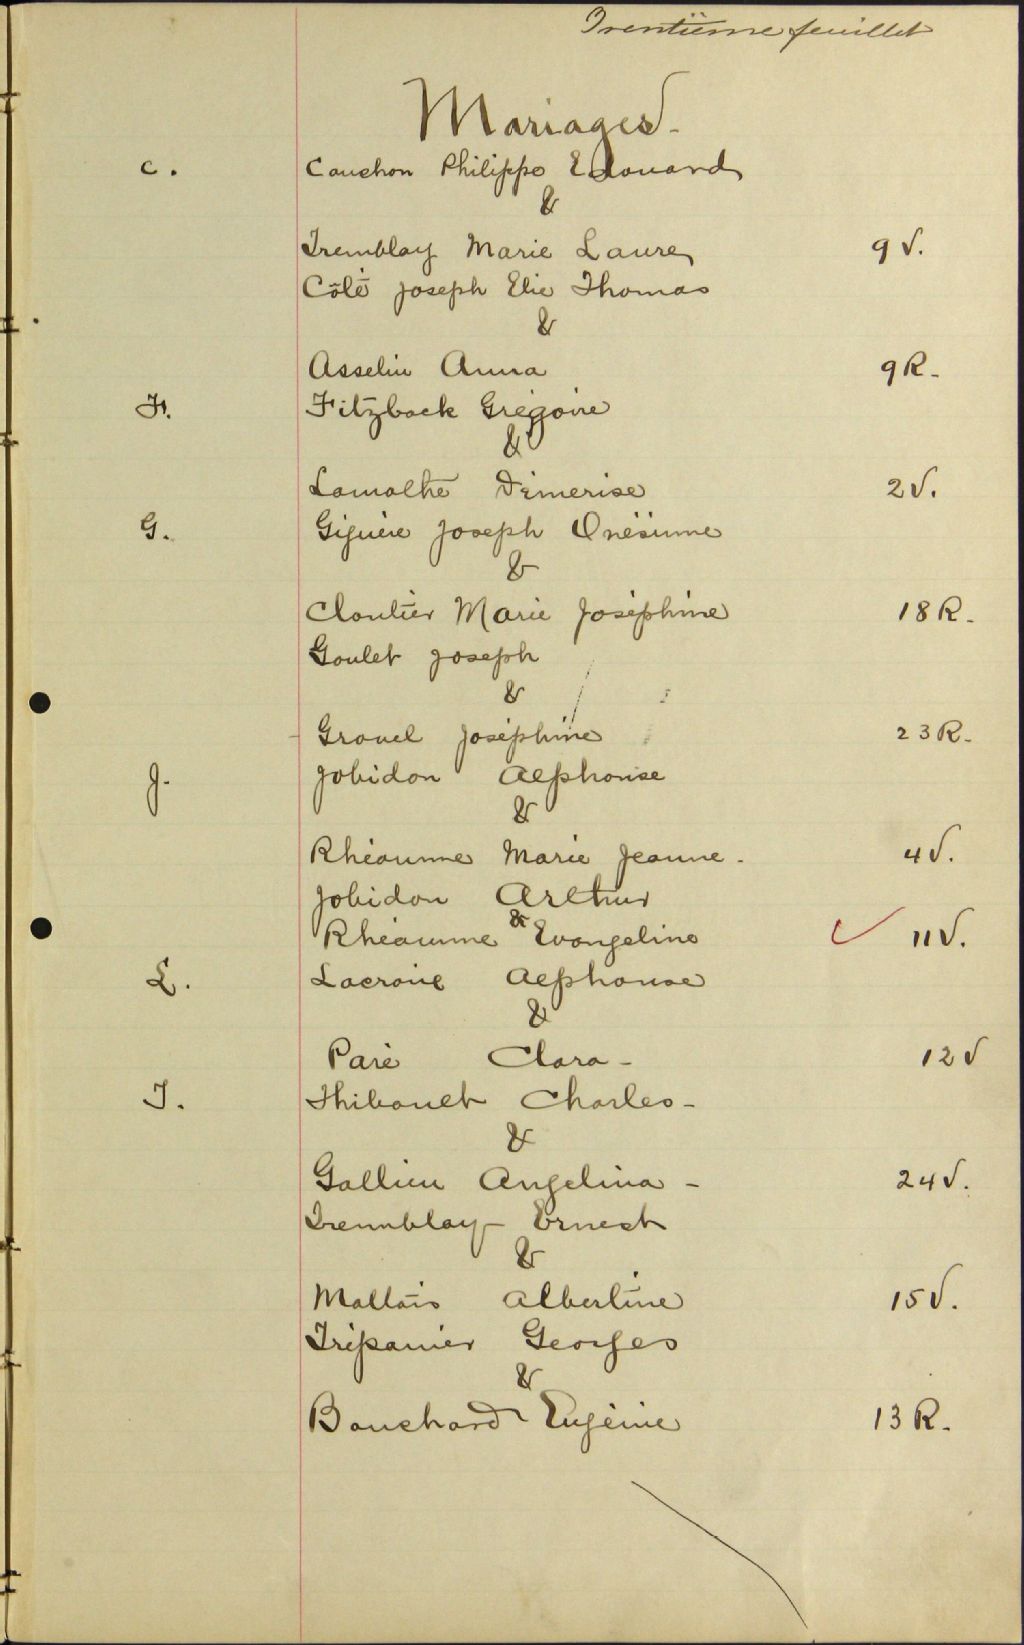 Trentième feuillet
Mariages-
C. Cauchon Philippe Edouard
&
Tremblay Marie Laure 9 V.
Côté Joseph Elie Thomas
&
Asselin Anna 9 R-
F. Fitzback Grégoire
&
Lamothe Démerise 2 V.
G. Giguère Joseph Onésime
&
Cloutier Marie Joséphine 18 R-
Goulet Joseph
&
Gravel Joséphine 23 R-
J. Jobidon Alphonse
&
Rhéaume Marie Jeanne- 4 V.
Jobidon Arthur
&
Rhéaume Evangeline 11 V.
L. Lacroix Alphonse
&
Paré Clara- 12 V
T. Thibault Charles-
&
Gallien Angelina- 24 V.
Tremblay Ernest
&
Mallais Albertine 15 V.
Trépanier Georges
&
Bouchard Eugénie 13 R-